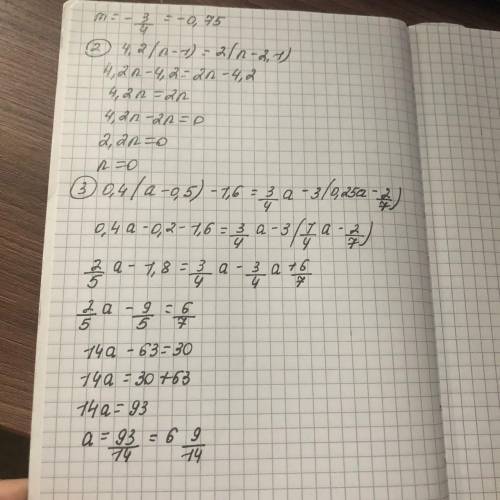 m = - 3/4 = -0,75
② 4,2(n-1) = 2(n-2,1)
4,2n-4,2=2n-4,2
4,2n=2n
4,2n-2n=0
2,2n=0
n=0
③ 0,4(a-0,5)-1,6=3/4 a-3(0,25a-2/7)
0,4a-0,2-1,6=3/4 a-3(1/4 a-2/7)
2/5 a-1,8=3/4 a-3/4 a+6/7
2/5 a-9/5=6/7
14a-63=30
14a=30+63
14a=93
a=93/14=6 9/14